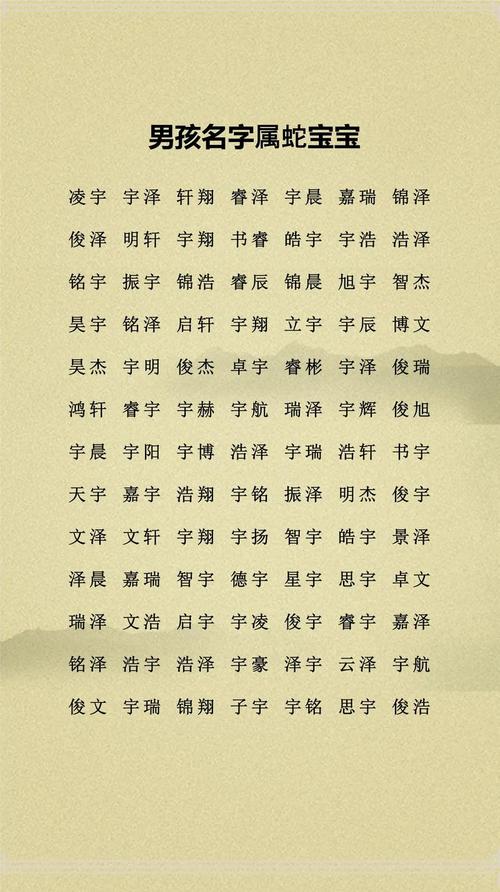 男孩名字属蛇宝宝
凌宇 宇泽 轩翔 睿泽 宇晨 嘉瑞 锦泽
俊泽 明轩 宇翔 书睿 皓宇 宇浩 浩泽
铭宇 振宇 锦浩 睿辰 锦晨 旭宇 智杰
昊宇 铭泽 启轩 宇翔 立宇 宇辰 博文
昊杰 宇明 俊杰 卓宇 睿彬 宇泽 俊瑞
鸿轩 睿宇 宇赫 宇航 瑞泽 宇辉 俊旭
宇晨 宇阳 宇博 浩泽 宇瑞 浩轩 书宇
天宇 嘉宇 浩翔 宇铭 振泽 明杰 俊宇
文泽 文轩 宇翔 宇扬 智宇 皓宇 景泽
泽晨 嘉瑞 智宇 德宇 星宇 思宇 卓文
瑞泽 文浩 启宇 宇凌 俊宇 睿宇 嘉泽
铭泽 浩宇 浩泽 宇豪 泽宇 云泽 宇航
俊文 宇瑞 锦翔 子宇 宇铭 思宇 俊浩